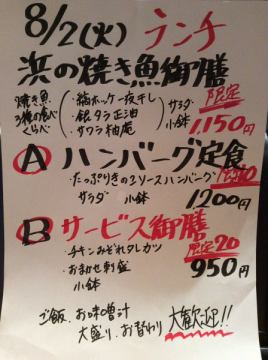 8/2(火) ランチ
浜の焼き魚御膳
焼き魚3種の食べくらべ
・縞ホッケ一夜干し
・銀ダラ正油
・サワラ柚庵
サラダ
小鉢
限定
1,150円
A ハンバーグ定食
・たっぷりきのこソースハンバーグ
サラダ 小鉢
1200円
B サービス御膳
・チキンみぞれダレカツ
限定20
・おまかせ刺盛
小鉢
950円
ご飯、お味噌汁
大盛り、お替わり 大歓迎!!